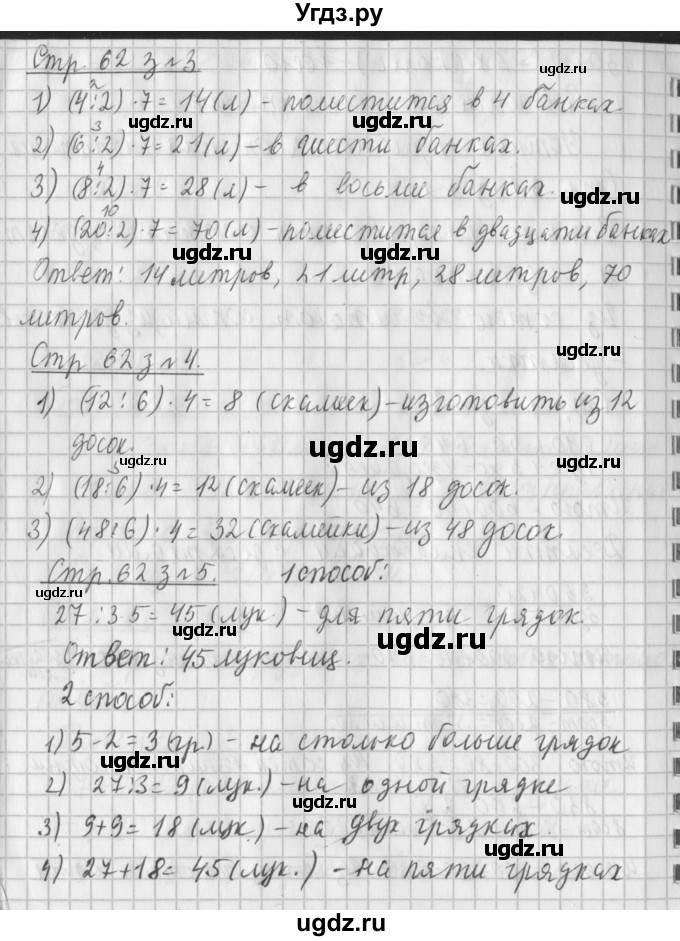 Угдз.ру
Стр. 62 з №3
2
1) (4:2)·7=14(л) - поместится в 4 банках.
3
2) (6:2)·7=21(л) - в шести банках.
4
3) (8:2)·7=28(л) - в восьми банках.
10
4) (20:2)·7=70(л) - поместится в двадцати банках
Ответ: 14 литров, 21 литр, 28 литров, 70
литров.
Стр 62 з №4.
1) (12:6)·4=8 (скамеек) - изготовить из 12
досок.
3
2) (18:6)·4=12(скамеек) - из 18 досок.
3) (48:6)·4=32(скамейки) - из 48 досок.
Стр. 62 з №5. 1 способ:
27:3·5=45(лук.) - для пяти грядок.
Ответ: 45 луковиц.
2 способ:
1) 5-2=3(гр.) - на столько больше грядок
2) 27:3=9(лук.) - на одной грядке
3) 9+9=18(лук) - на двух грядках.
4) 27+18=45(лук.) - на пяти грядках
ugdz.ru